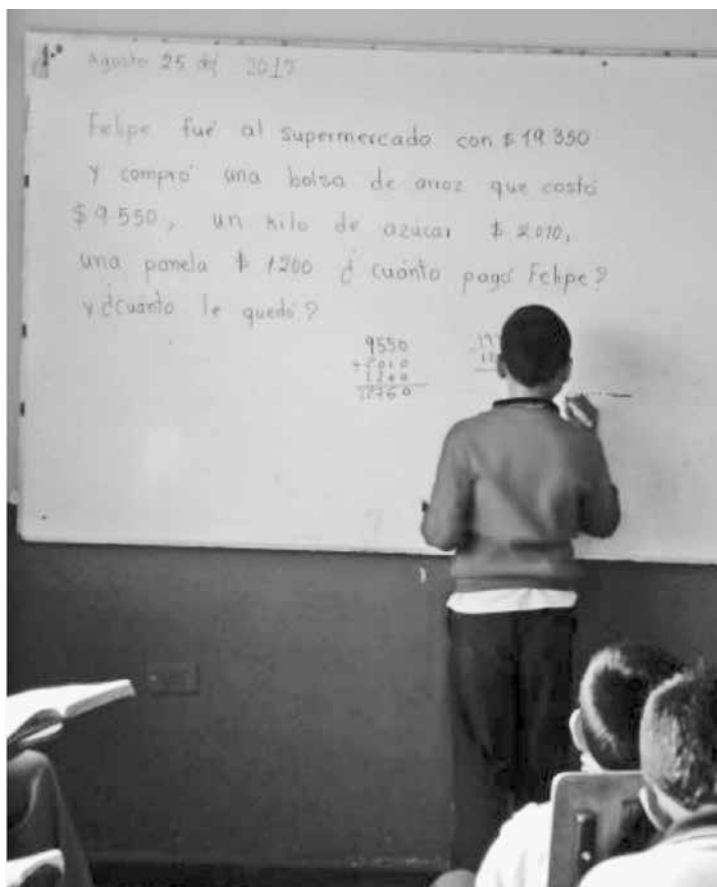 Agosto 25 del 2015
Felipe fué al supermercado con $19 350
y compró una bolsa de arroz que costó
$9.550, un kilo de azúcar $2.010,
una panela $1.200 ¿cuánto pagó Felipe?
y ¿cuánto le quedó?
9550
+2010
1200
12760